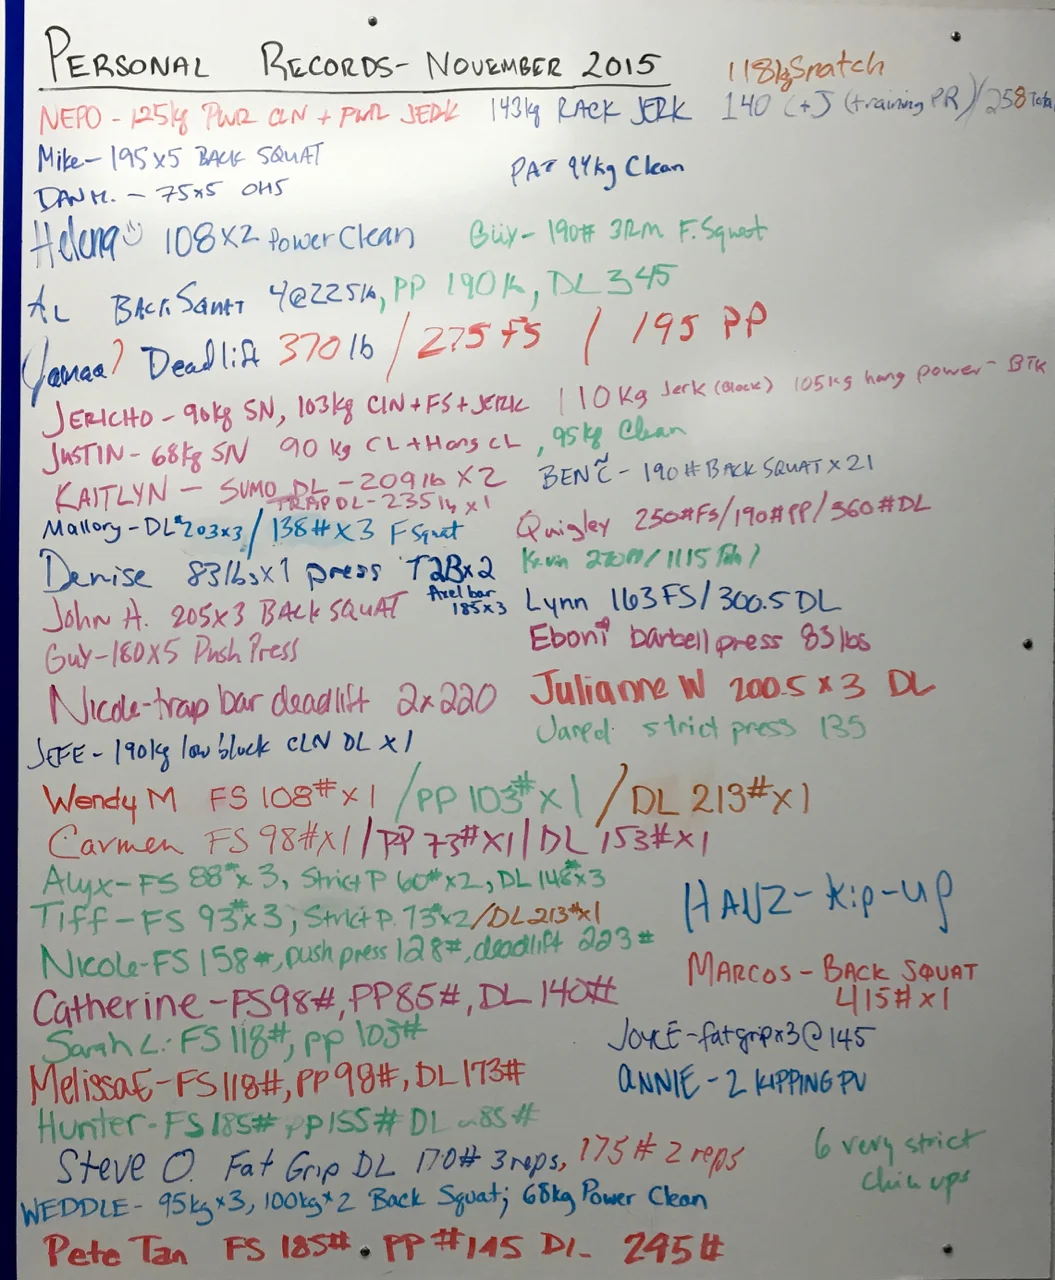 PERSONAL RECORDS- NOVEMBER 2015
118kg Snatch
NEPO - 125kg PWR CLN + PWR JERK 143kg RACK JERK 140 C+J (training PR)/258 Total
Mike- 195x5 BACK SQUAT
PAT 94kg Clean
DAN M. - 75x5 OHS
Helena 108x2 Power Clean Guy- 190# 3RM F. Squat
AL BACK SQUAT 4@225lb, PP 190lb, DL 345
Deadlift 370lb / 275 FS / 195 PP
JERICHO - 90kg SN, 103kg CLN+FS+JERK 110Kg Jerk (Block) 105kg hang power- BTK
JUSTIN- 68kg SN 90 kg CL+Hang CL, 95kg Clean
KAITLYN - SUMO DL -209lb X2 BEN C - 190# BACK SQUAT x21
TRAP DL-235lb x1
Mallory-DL 203x3 / 138# x3 F Squat Quigley 250#FS/190#PP/360#DL
Denise 83lbs x1 press T2Bx2
John H. 205x3 BACK SQUAT Axel bar 185x3 Lynn 163FS/300.5 DL
Guy-180x5 Push Press Eboni barbell press 83lbs
Nicole-trap bar deadlift 2x220 Julianne W 200.5 x3 DL
Jared strict press 135
JEFE - 190kg low block CLN DL x1
Wendy M FS 108# x1 / PP 103# x1 / DL 213# x1
Carmen FS 98#x1/PP 73#x1/DL 153#x1
Alyx-FS 88#x3, Strict P 60#x2, DL 148#x3
Tiff-FS 93#x3, Strict P. 73#x2/DL 213#x1
HANZ-Kip-up
Nicole-FS 158#, push press 128#, deadlift 223#
MARCOS - BACK SQUAT
415#x1
Catherine-FS98#, PP85#, DL 140#
Sarah L: FS 118#, PP 103#
JOYCE-fat grip x3@145
Melissa E-FS118#, PP98#, DL173#
ANNIE-2 KIPPING PU
Hunter-FS185# PP155# DL
Steve O. Fat Grip DL 170# 3 reps, 175# 2 reps
6 very strict
chin ups
WEDDLE- 95kg x3, 100kg x2 Back Squat; 68kg Power Clean
Pete Tan FS 185#. PP #145 DL 295#